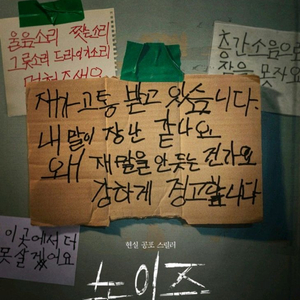 웃음소리 찢는소리
그릇소리 드라이소리
멈춰주세요
층간소음으로
잠을 못자요
제가 고통 받고 있습니다.
내 말이 장난 같나요
왜 제 말을 안 듣는 건가요
강하게 경고합니다
이곳에서 더
못 살겠어요
현실 공포 스릴러
노이즈